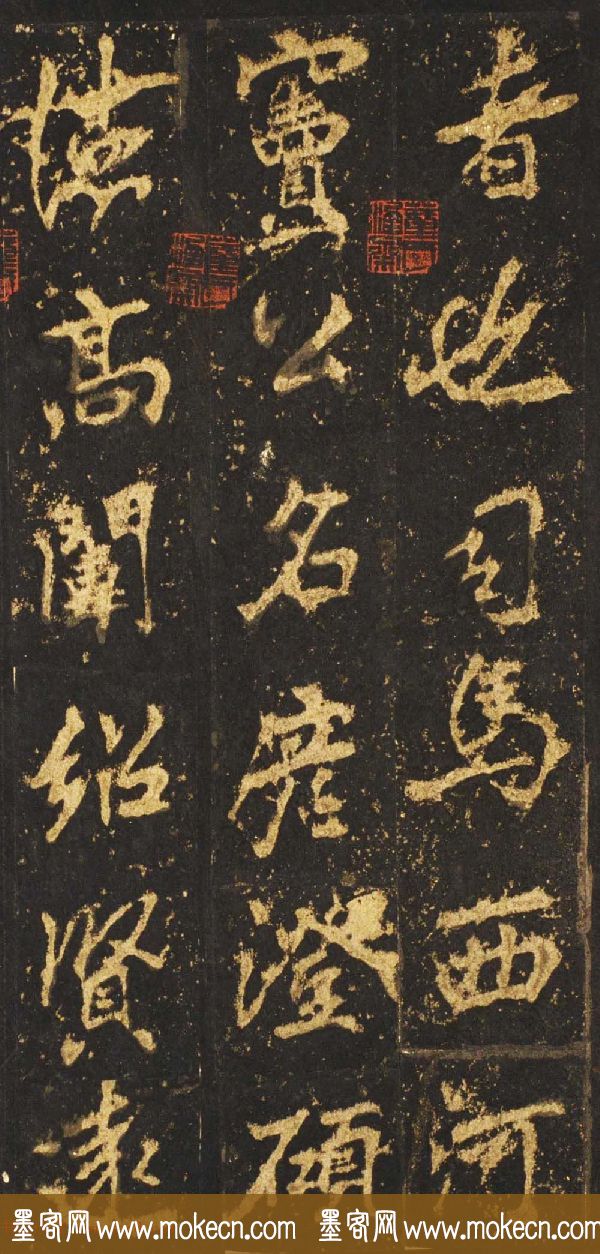 者也司馬西河
竇公名彥澄碩
德高闡紹賢遠
墨客网 www.mokecn.com 墨客网 www.mokecn.com